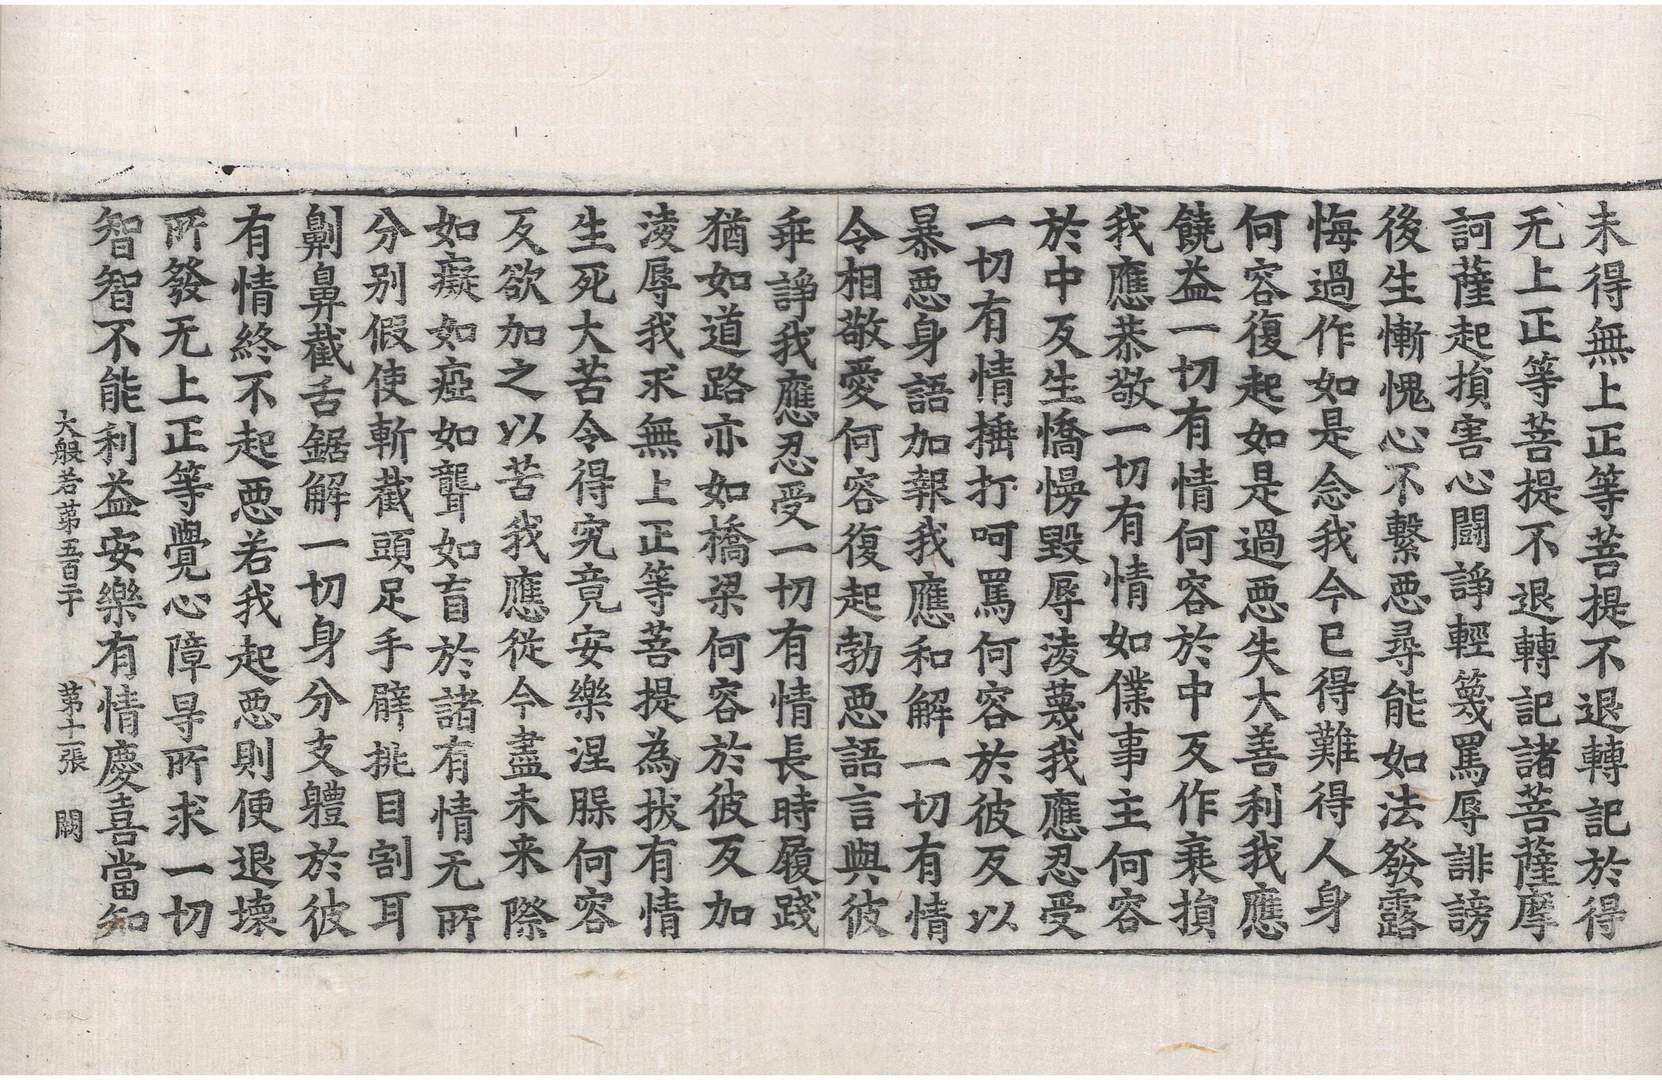 未得無上正等菩提不退轉記於得
无上正等菩提不退轉記諸菩薩摩
訶薩起損害心鬪諍輕篾罵辱誹謗
後生慚愧心不繫惡尋能如法發露
悔過作如是念我今已得難得人身
何容復起如是過惡失大善利我應
饒益一切有情何容於中反作衰損
我應恭敬一切有情如僕事主何容
於中反生憍慢毀辱淩蔑我應忍受
一切有情捶打呵罵何容於彼反以
暴惡身語加報我應和解一切有情
令相敬愛何容復起勃惡語言與彼
乖諍我應忍受一切有情長時履踐
猶如道路亦如橋梁何容於彼反加
淩辱我求無上正等菩提為拔有情
生死大苦令得究竟安樂涅槃何容
反欲加之以苦我應從今盡未来際
如癡如瘂如聾如盲於諸有情无所
分别假使斬截頭足手臂挑目割耳
劓鼻截舌鋸解一切身分支體於彼
有情終不起惡若我起惡則便退壞
所發无上正等覺心障㝵所求一切
智智不能利益安樂有情慶喜當知
大般若第五百二十 第十一張 闕